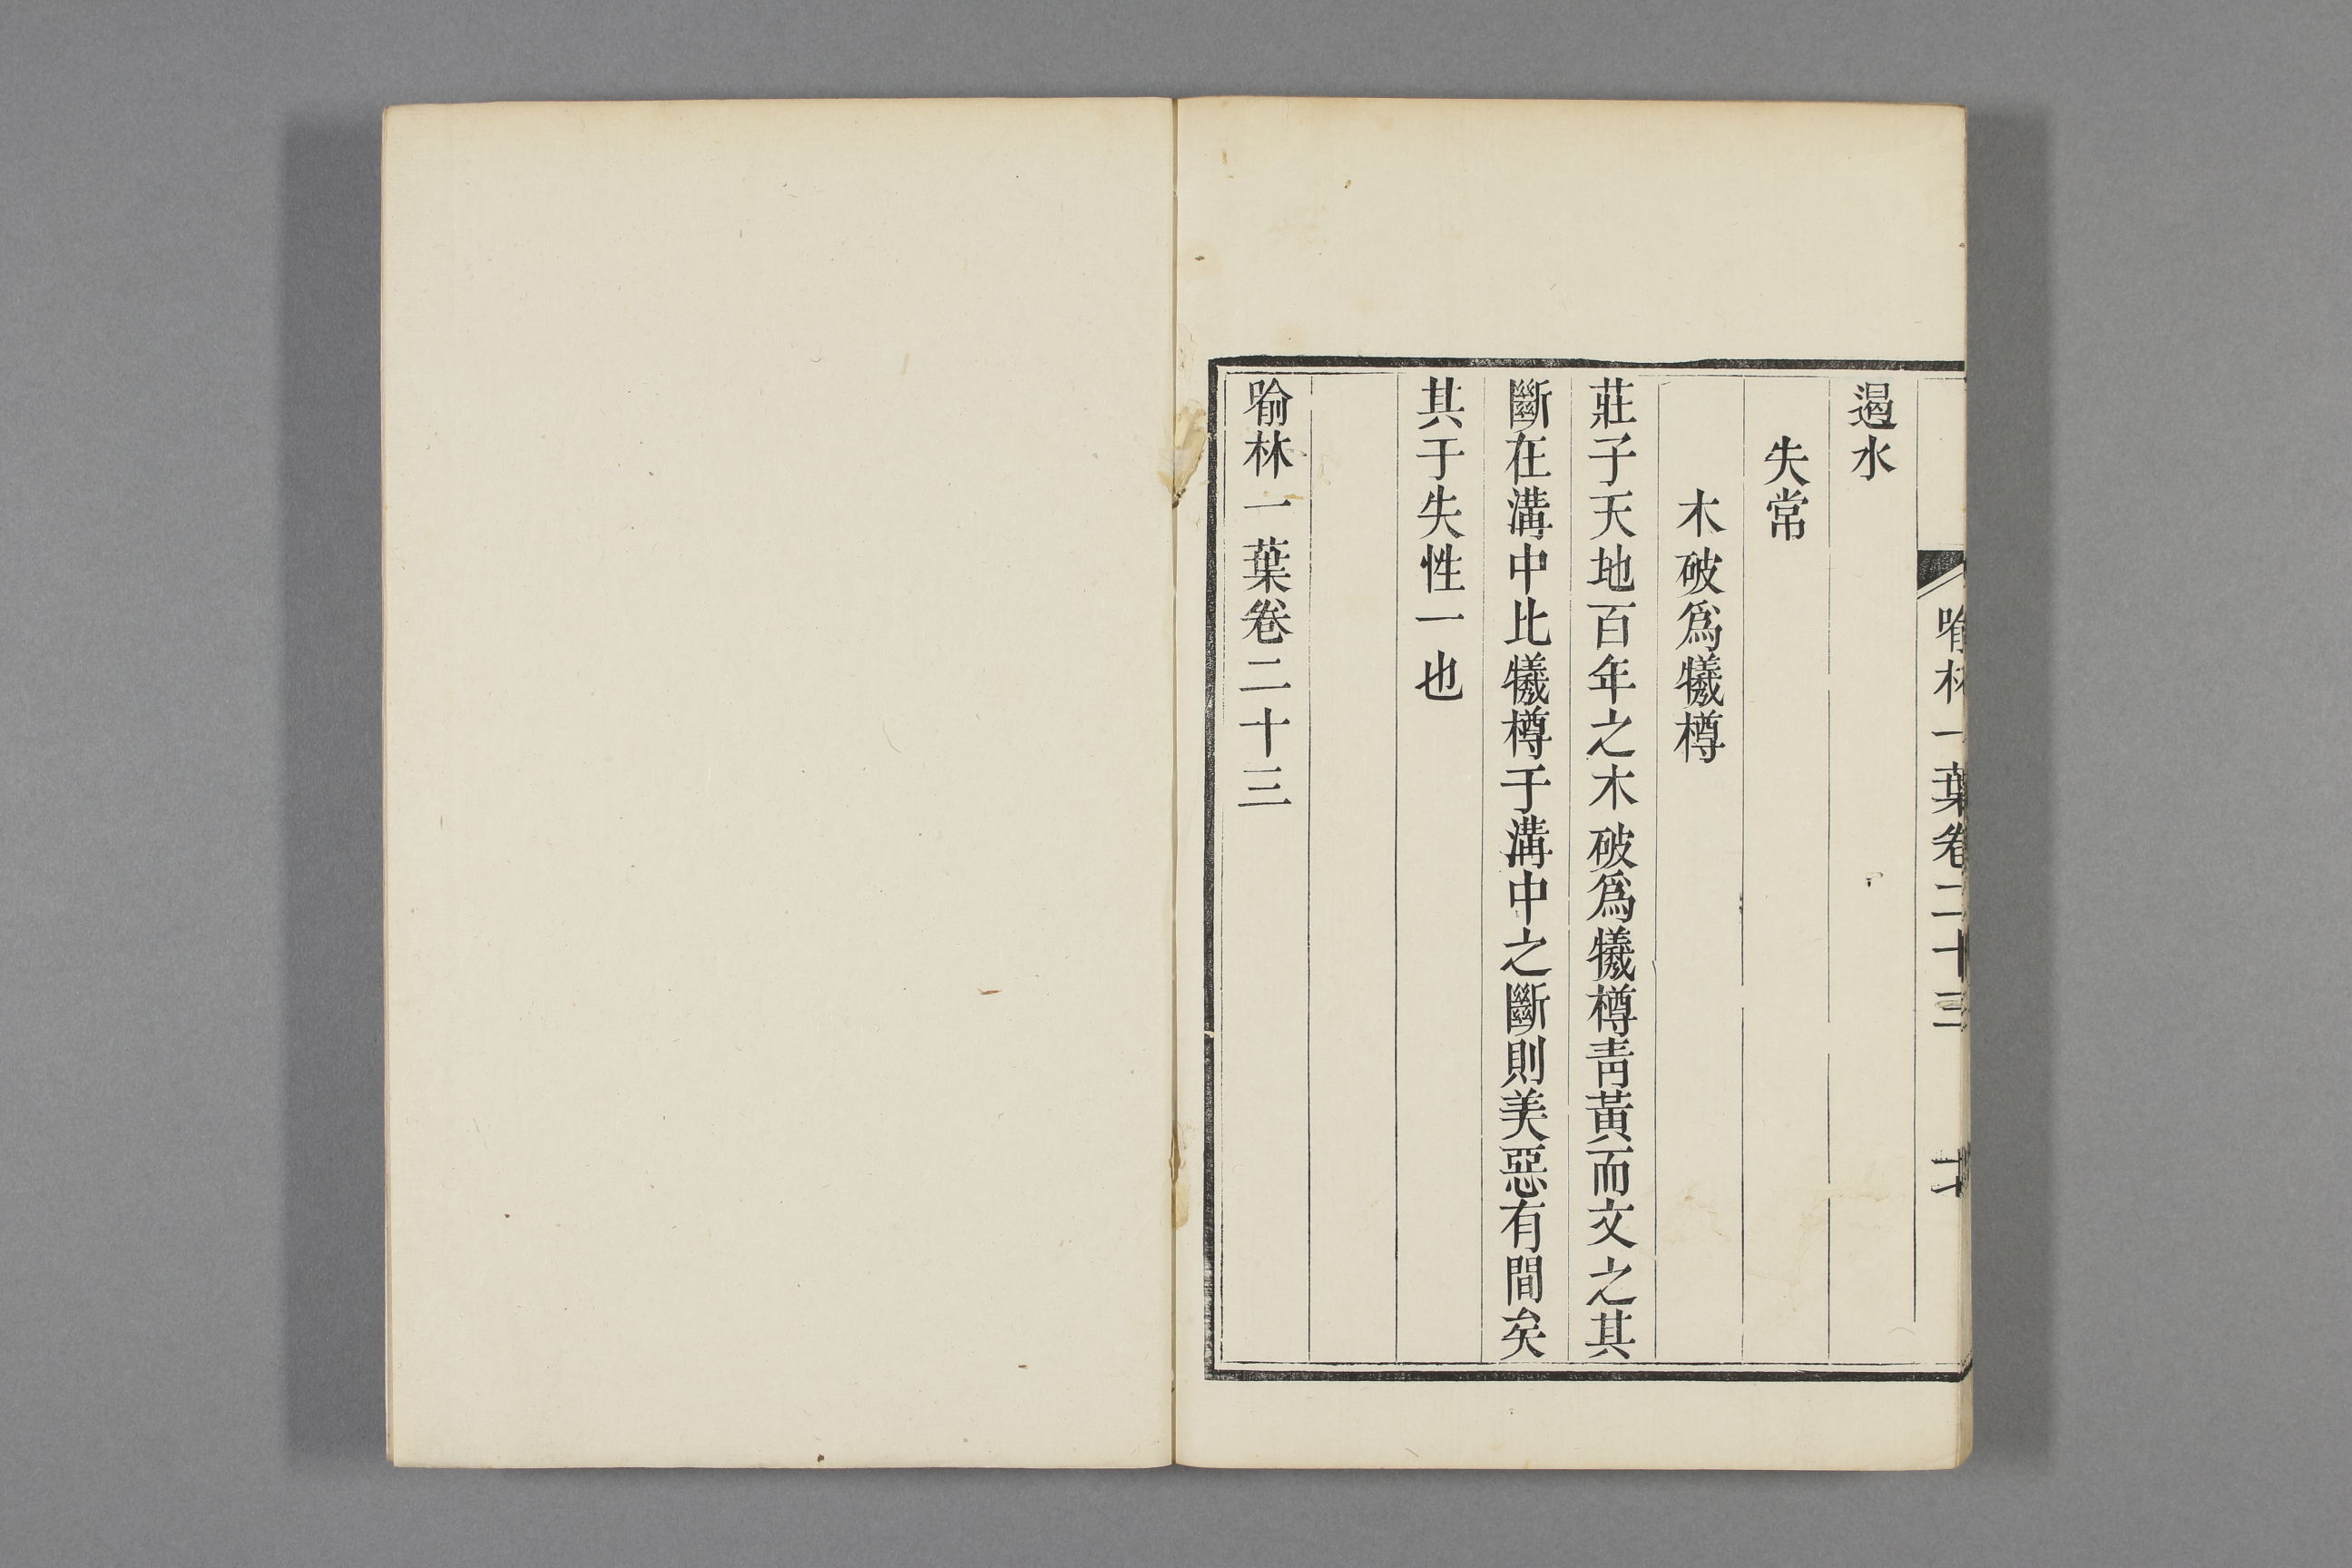 喻林一葉卷二十三
遏水
失常
木破爲犧樽
莊子天地百年之木破爲犧樽青黃而文之其
斷在溝中比犧樽于溝中之斷則美惡有間矣
其于失性一也
喻林一葉卷二十三